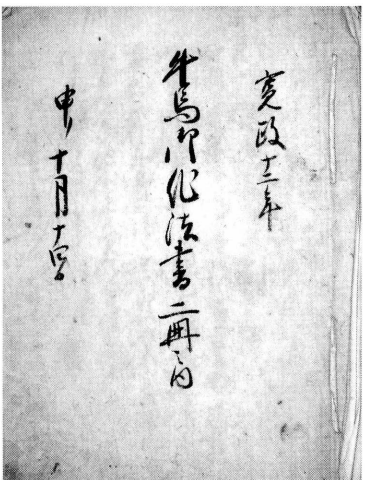 寛政十二年
牛馬御作法書二冊之内
申ノ十月十四日